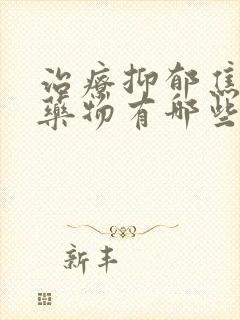 治療抑郁焦
藥物有哪些
新丰